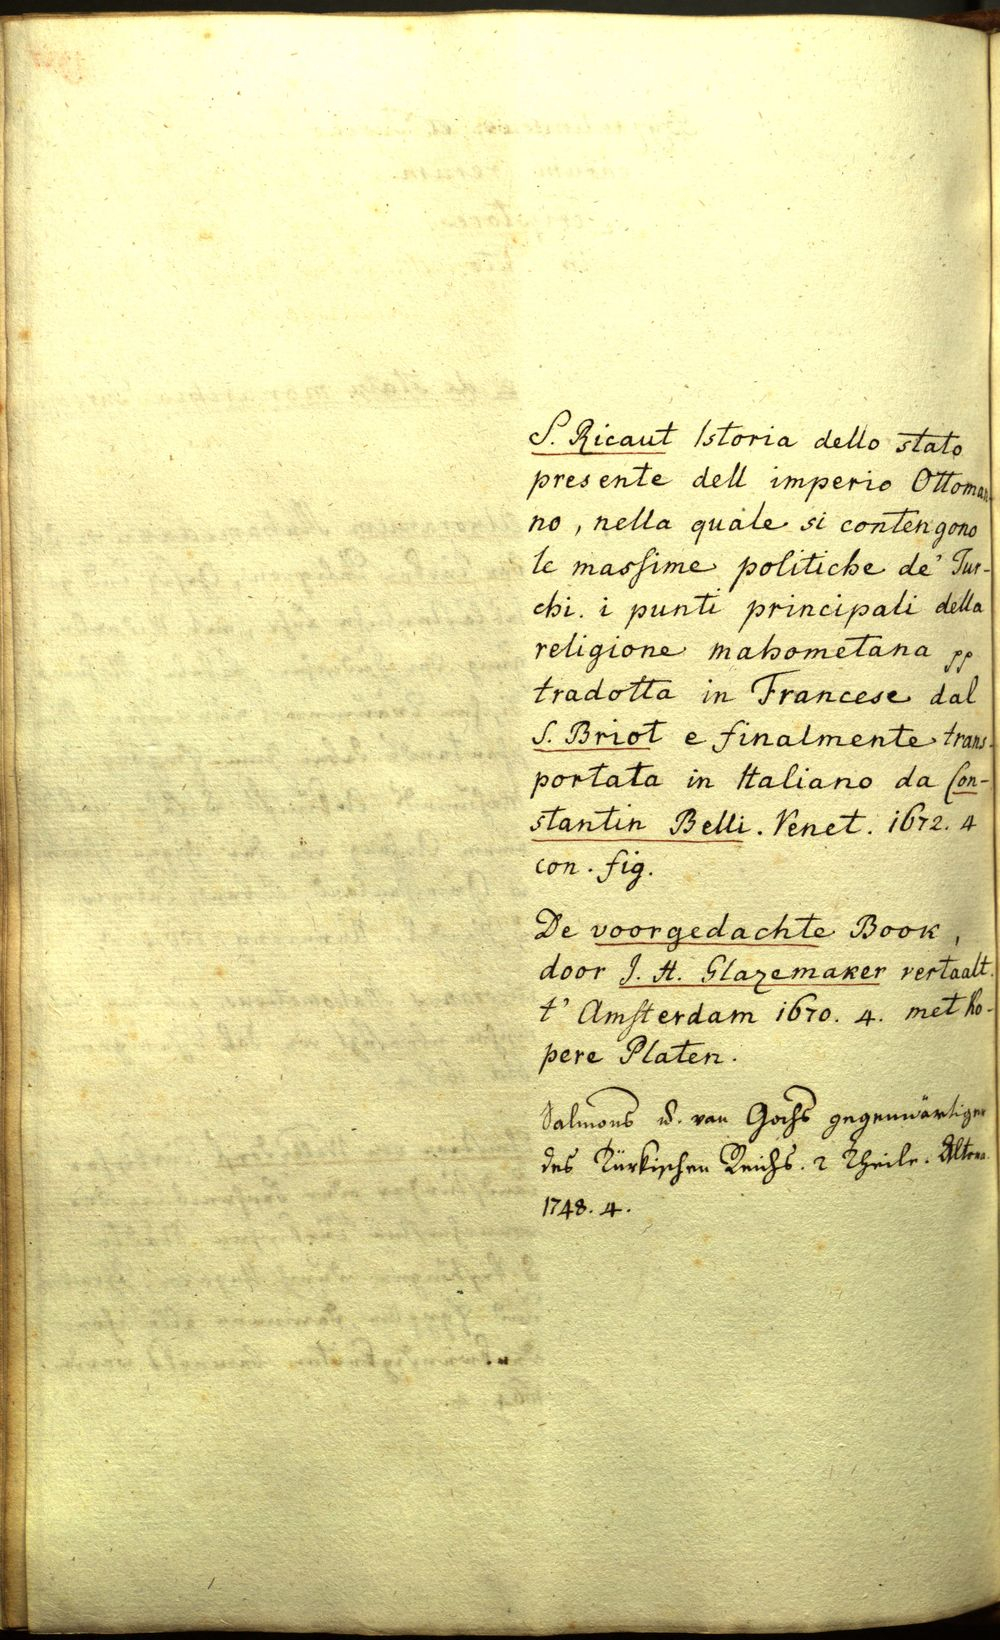 S. Ricaut Istoria dello stato
presente dell imperio Ottoman-
no, nella quale si contengono
le massime politiche de' Tur-
chi. i punti principali della
religione mahometana pp
tradotta in Francese dal
S. Briot e finalmente trans-
portata in Italiano da Con-
stantin Belli. Venet. 1672. 4
con. fig.
De voorgedachte Book,
door J. H. Glazemaker vertaalt.
t' Amsterdam 1670. 4. met ko-
pere Platen.
Salmons u. van Gochs gegenwärtiger
des Türkischen Reichs. 2 Theile. Altona
1748. 4.